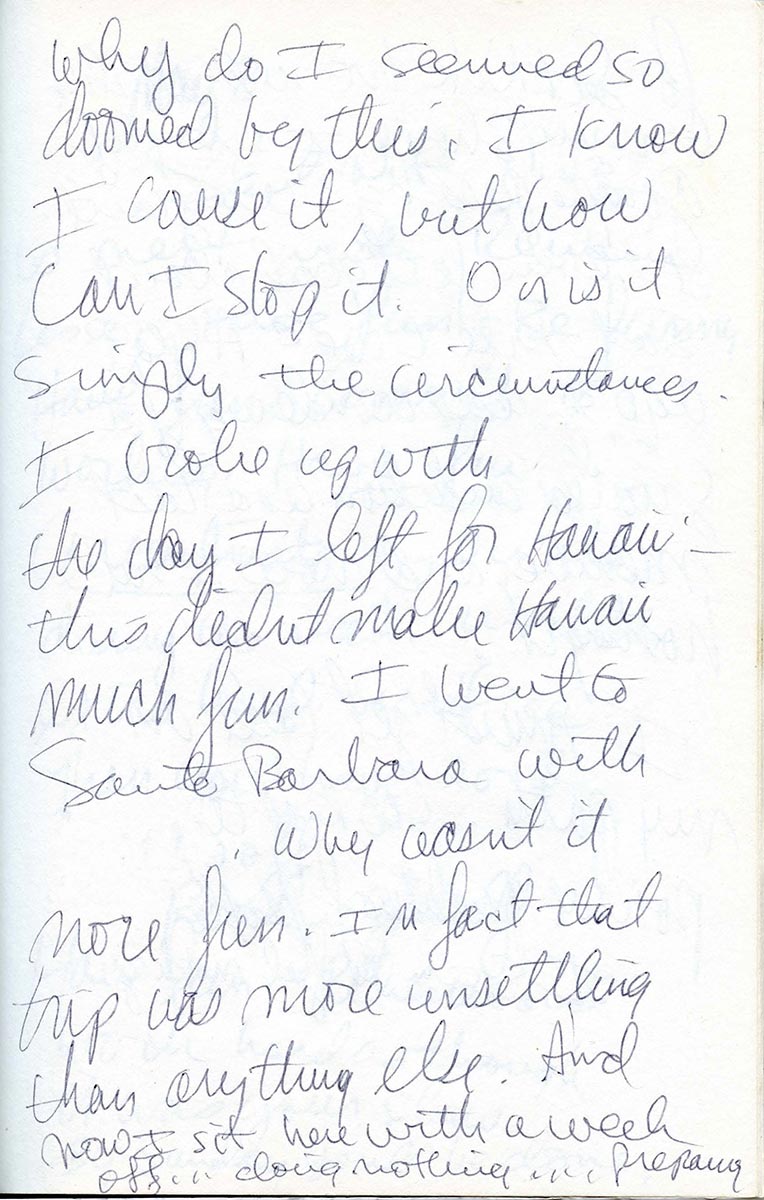 Why do I seemed so
doomed by this. I know
I cause it, but how
Can I stop it. Or is it
simply the circumstances.
I broke up with
the day I left for Hawaii –
this didn't make Hawaii
much fun. I went to
Santa Barbara with
. Why wasn't it
more fun. In fact that
trip was more unsettling
than anything else. And
now I sit here with a week
off... doing nothing .... preparing